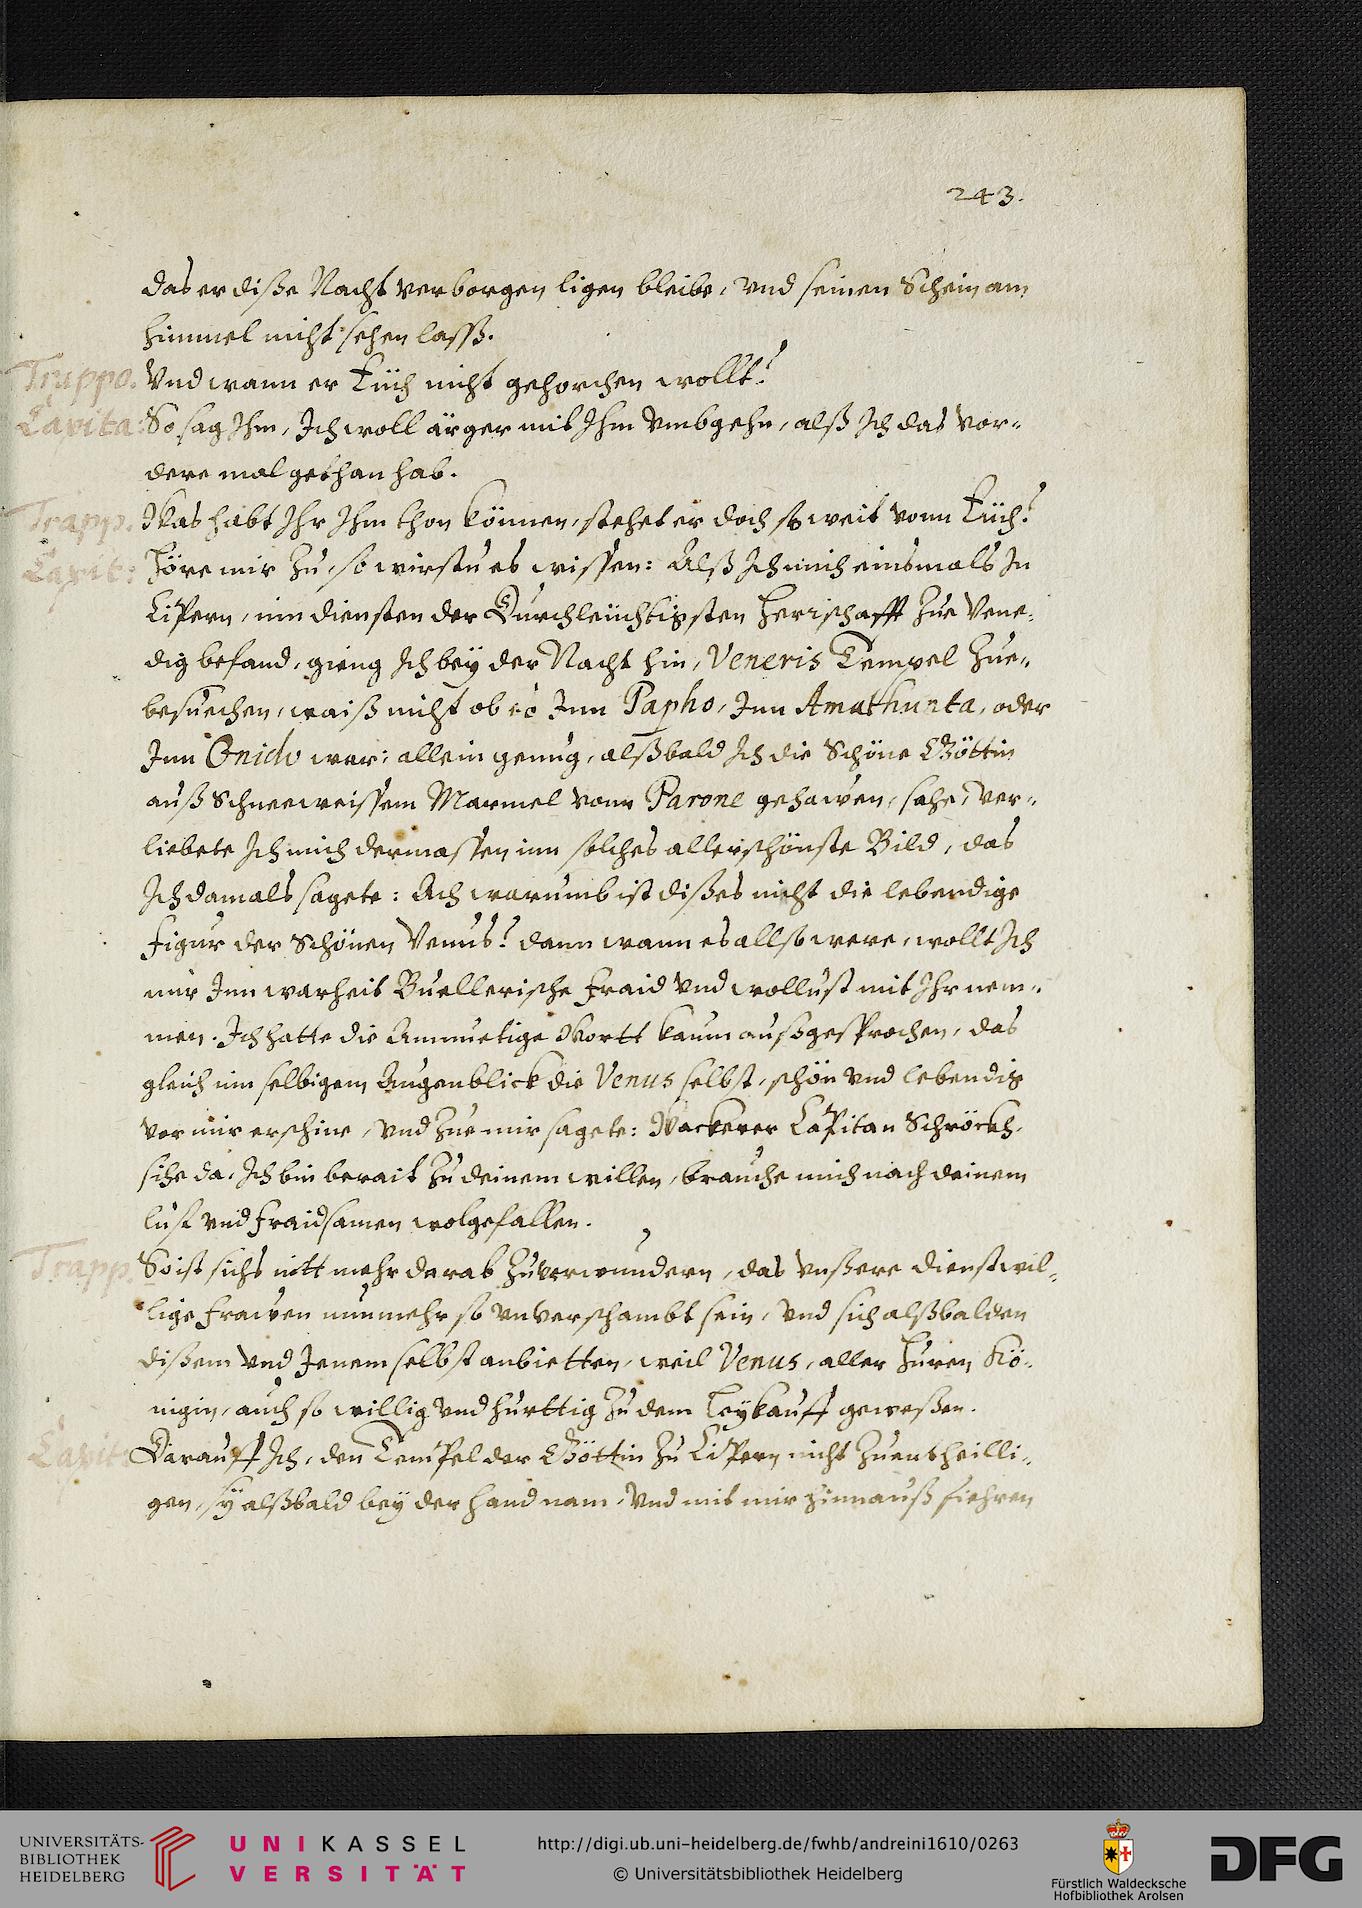 243.
das er diße Nacht verborgen ligen bleibe, vnd seinen Schein am
himmel nicht sehen lasß.
Trappo. Vnd wann er Eüch nicht gehorchen wollt?
Capita: So sag Ihm, Ich woll ärger mit Ihm vmbgehn, alß Ich das vor-
dere mal gethan hab.
Trapp. Was habt Ihr Ihm thon können, stehet er doch so weit vonn Eüch?
Capit: Höre mir zu, so wirstu es wissen: Alß Ich mich einsmals In
Cipern, inn diensten der Durchleüchtigsten Herrschafft zue Vene-
dig befand, gieng Ich beÿ der Nacht hin, Veneris Tempel zue-
besuechen, waiß nicht ob es Inn Papho, Inn Amathunta, oder
Inn Gnido war: allein genug, alßbald Ich die Schöne Göttin
auß Schneeweissem Marmel vonn Parone gehawen, sahe, ver-
liebete Ich mich dermassen inn solches allerschönste Bild, das
Ich damals sagete: Ach warumb ist dißes nicht die lebendige
figur der Schönen Venus? dann wann es allso were, wollt Ich
mir Inn warheit Buellerische fraid vnd wollust mit Ihr nem-
men. Ich hatte die Anmuetige Wortt kaum außgesprochen, das
gleich inn selbigem Augenblick die Venus selbst, schön vnd lebendig
vor mir erschine, vnd zue mir sagete: Wackerer Capitan Schröckh,
sihe da, Ich bin berait zu deinem willen, brauche mich nach deinem
lust vnd fraidsamen wolgefallen.
Trapp. So ist sichs nitt mehr darab zuverwundern, das vnßere dienstwil-
lige frawen nunmehr so vnverschambt sein, vnd sich alßbalden
dißem vnd Jenem selbst anbietten, weil Venus, aller huren Kö-
nigin, auch so willig vnd hurttig zu dem leÿkauff geweßen.
Capit: Darauff Ich, den Tempel der Göttin zu Cipern nicht zuentheilli-
gen, sÿ alßbald beÿ der hand nam, vnd mit mir hinnauß fiehren
UNIVERSITÄTS-
BIBLIOTHEK
HEIDELBERG
UNIKASSEL
VERSITÄT
http://digi.ub.uni-heidelberg.de/fwhb/andreini1610/0263
© Universitätsbibliothek Heidelberg
Fürstlich Waldecksche
Hofbibliothek Arolsen
DFG